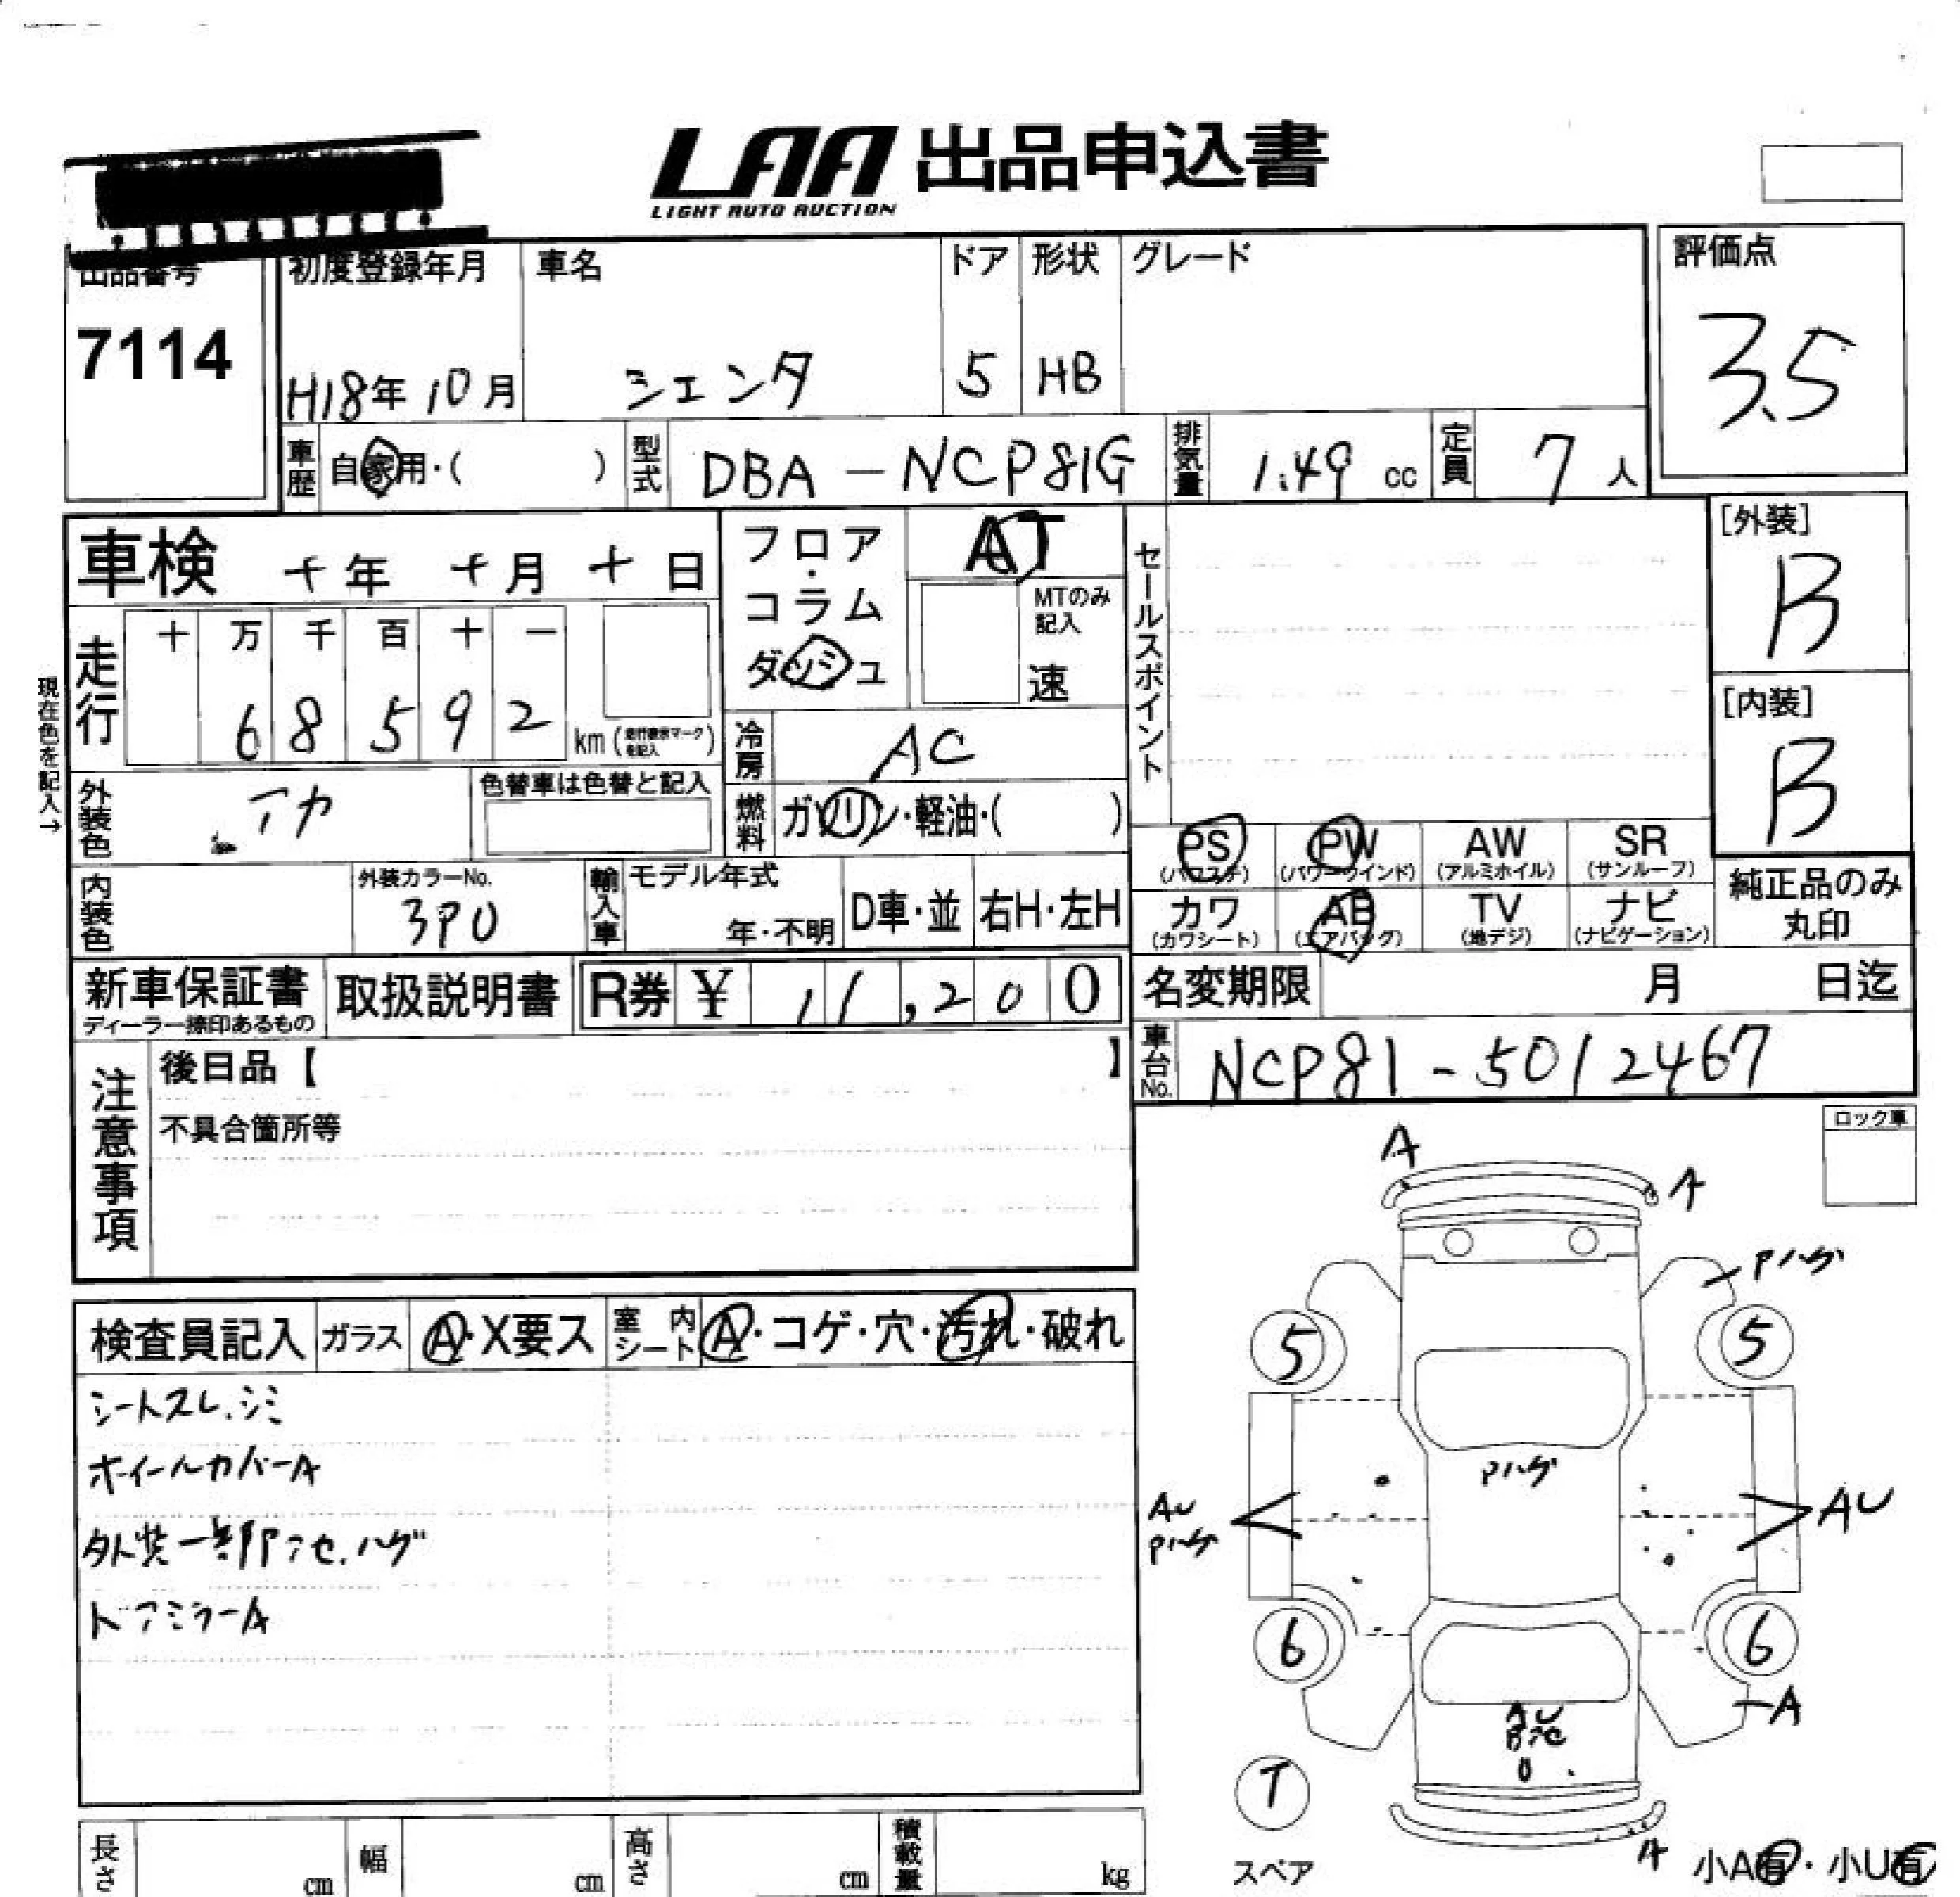 LAA 出品申込書
LIGHT AUTO AUCTION
出品番号
7114
初度登録年月
H18年10月
車名
シエンタ
ドア
5
形状
HB
グレード
評価点
3.5
車歴 自家用・( )
型式 DBA-NCP81G
排気量 1.49 cc
定員 7 人
車検 十年 十月 十日
フロア・コラム
ダッシュ
AT
MTのみ記入
速
セールスポイント
[外装]
B
[内装]
B
走行
十 万 千 百 十 一
6 8 5 9 2 km (走行表示マークを記入)
現在色を記入→
冷房 AC
外装色 アカ
色替車は色替と記入
燃料 ガソリン・軽油・( )
内装色
外装カラーNo.
3P0
輸入車
モデル年式
年・不明
D車・並
右H・左H
PS (パワステ)
PW (パワーウインド)
AW (アルミホイル)
SR (サンルーフ)
カワ (カワシート)
AB (エアバッグ)
TV (地デジ)
ナビ (ナビゲーション)
純正品のみ丸印
新車保証書
ディーラー捺印あるもの
取扱説明書
R券 ¥ 11,200
名変期限 月 日迄
車台No. NCP81-5012467
注意事項
後日品【 】
不具合箇所等
ロック車
検査員記入
ガラス A・X要ス
室内シート A・コゲ・穴・汚れ・破れ
シートスレ、シミ
ホイールカバーA
外装一部アセ、ハゲ
ドアミラーA
A
A
Pハゲ
5
5
Pハゲ
AU
Pハゲ
AU
6
6
A
AU
T
スペア
A
小A有・小U有
長さ cm
幅 cm
高さ cm
積載量 kg